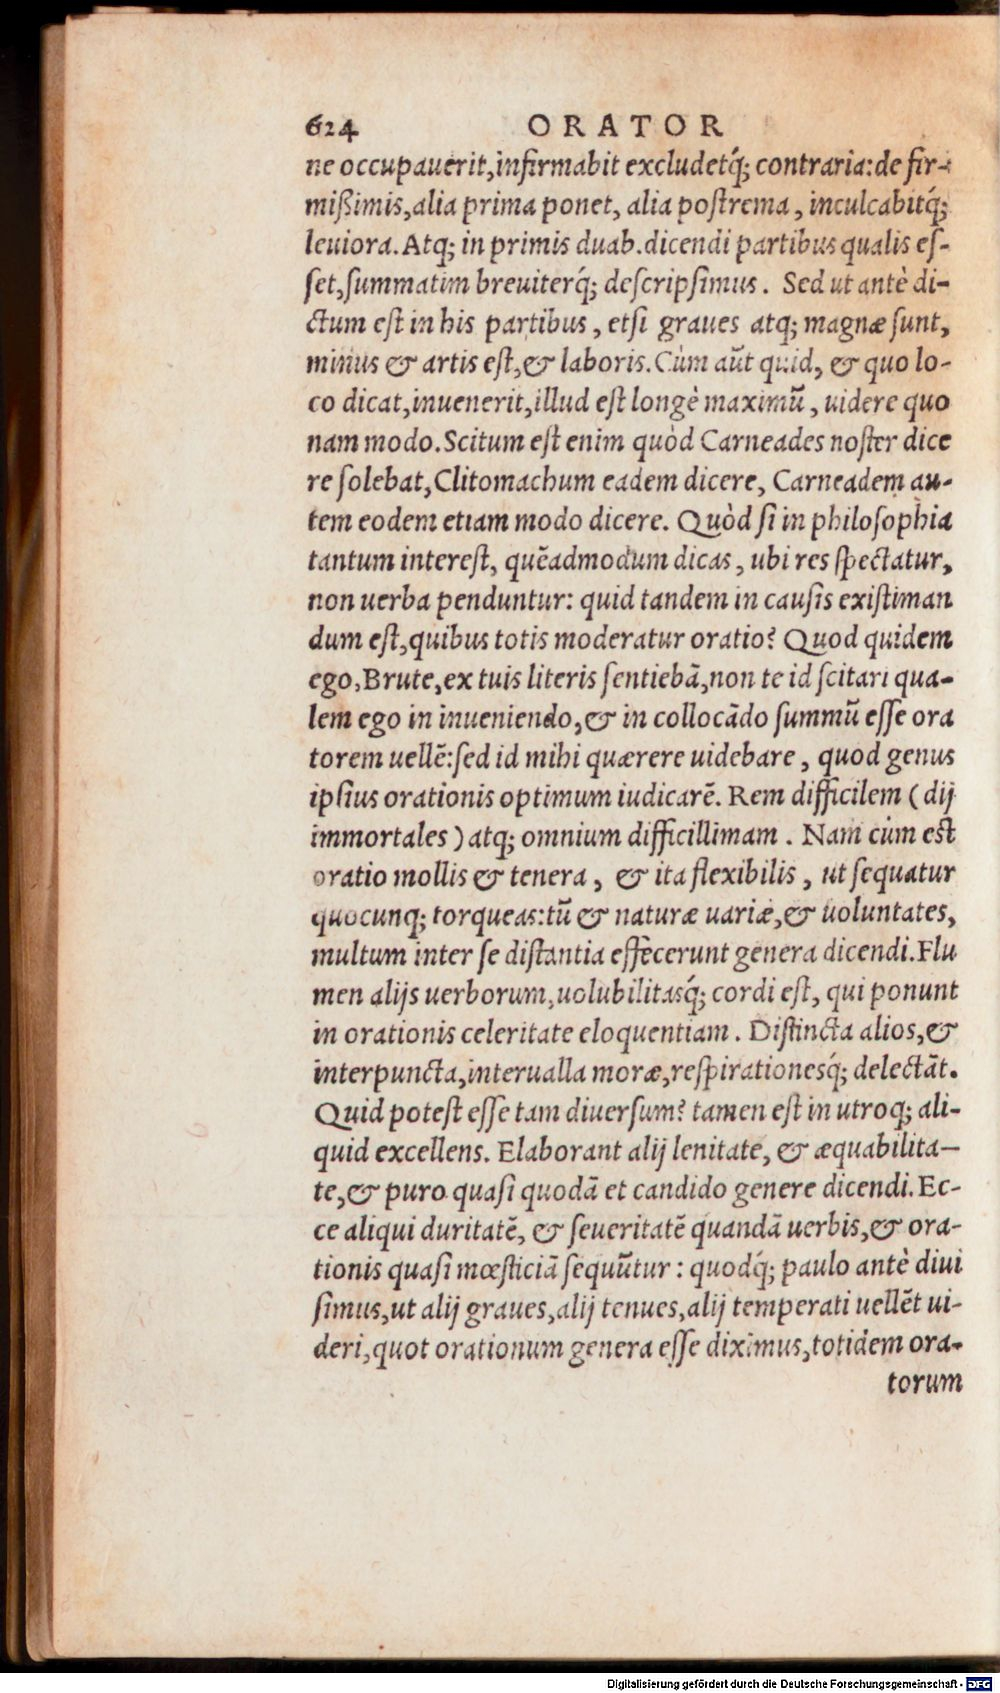 624 ORATOR
ne occupauerit,infirmabit excludetq́; contraria:de fir-
mißimis,alia prima ponet, alia postrema, inculcabitq́;
leuiora. Atq; in primis duab. dicendi partibus qualis es-
set,summatim breuiterq́; descripsimus. Sed ut antè di-
ctum est in his partibus, etsi graues atq; magnæ sunt,
minus & artis est,& laboris. Cùm aūt quid, & quo lo-
co dicat,inuenerit,illud est longè maximū, uidere quo
nam modo. Scitum est enim quòd Carneades noster dice
re solebat,Clitomachum eadem dicere, Carneadem au-
tem eodem etiam modo dicere. Quòd si in philosophia
tantum interest, quēadmodum dicas, ubi res spectatur,
non uerba penduntur: quid tandem in causis existiman
dum est,quibus totis moderatur oratio? Quod quidem
ego,Brute,ex tuis literis sentiebā,non te id scitari qua-
lem ego in inueniendo,& in collocādo summū esse ora
torem uellē:sed id mihi quærere uidebare, quod genus
ipsius orationis optimum iudicarē. Rem difficilem (dij
immortales) atq; omnium difficillimam. Nam cùm est
oratio mollis & tenera, & ita flexibilis, ut sequatur
quocunq; torqueas:tū & naturæ uariæ,& uoluntates,
multum inter se distantia effecerunt genera dicendi. Flu
men alijs uerborum,uolubilitasq́; cordi est, qui ponunt
in orationis celeritate eloquentiam. Distincta alios,&
interpuncta,interualla moræ,respirationesq́; delectāt.
Quid potest esse tam diuersum? tamen est in utroq; ali-
quid excellens. Elaborant alij lenitate, & æquabilita-
te,& puro quasi quodā et candido genere dicendi. Ec-
ce aliqui duritatē, & seueritatē quandā uerbis,& ora-
tionis quasi mœsticiā sequūtur: quodq́; paulo antè diui
simus,ut alij graues,alij tenues,alij temperati uellēt ui-
deri,quot orationum genera esse diximus,totidem ora-
torum
Digitalisierung gefördert durch die Deutsche Forschungsgemeinschaft - DFG